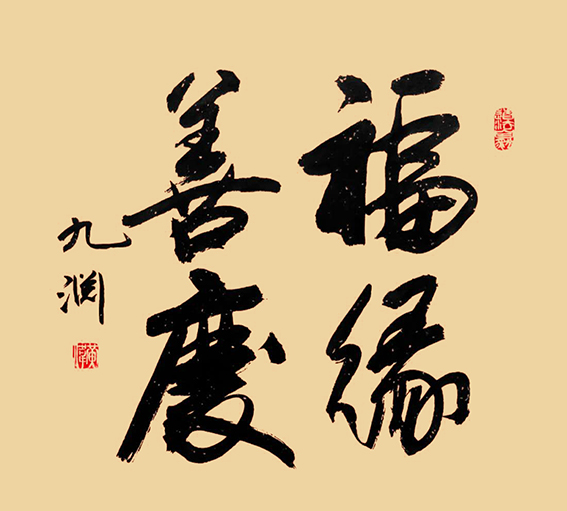 福緣
善慶
九渕